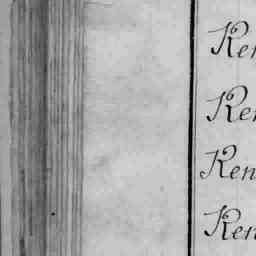 Ken
Ken
Ken
Ken